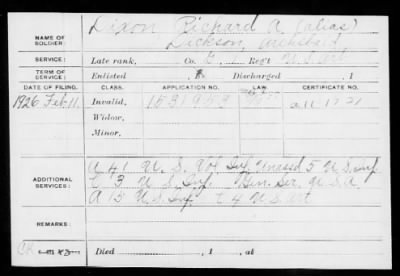 Dixon, Richard A. (alias)
NAME OF SOLDIER: Dickson,
SERVICE: Late rank, Co. Reg't U.S. Art
TERM OF SERVICE: Enlisted , 1 Discharged , 1
DATE OF FILING. CLASS. APPLICATION NO. LAW. CERTIFICATE NO.
1926 Feb. 11. Invalid,
Widow,
Minor,
A 41 U.S. Vol Inf. Unassd 5 U.S. Inf
ADDITIONAL SERVICES: 3 U.S. Inf. Gen. Ser. U.S.A.
A 15 U.S. Inf 4 U.S. Art
REMARKS:
Died , 1 , at